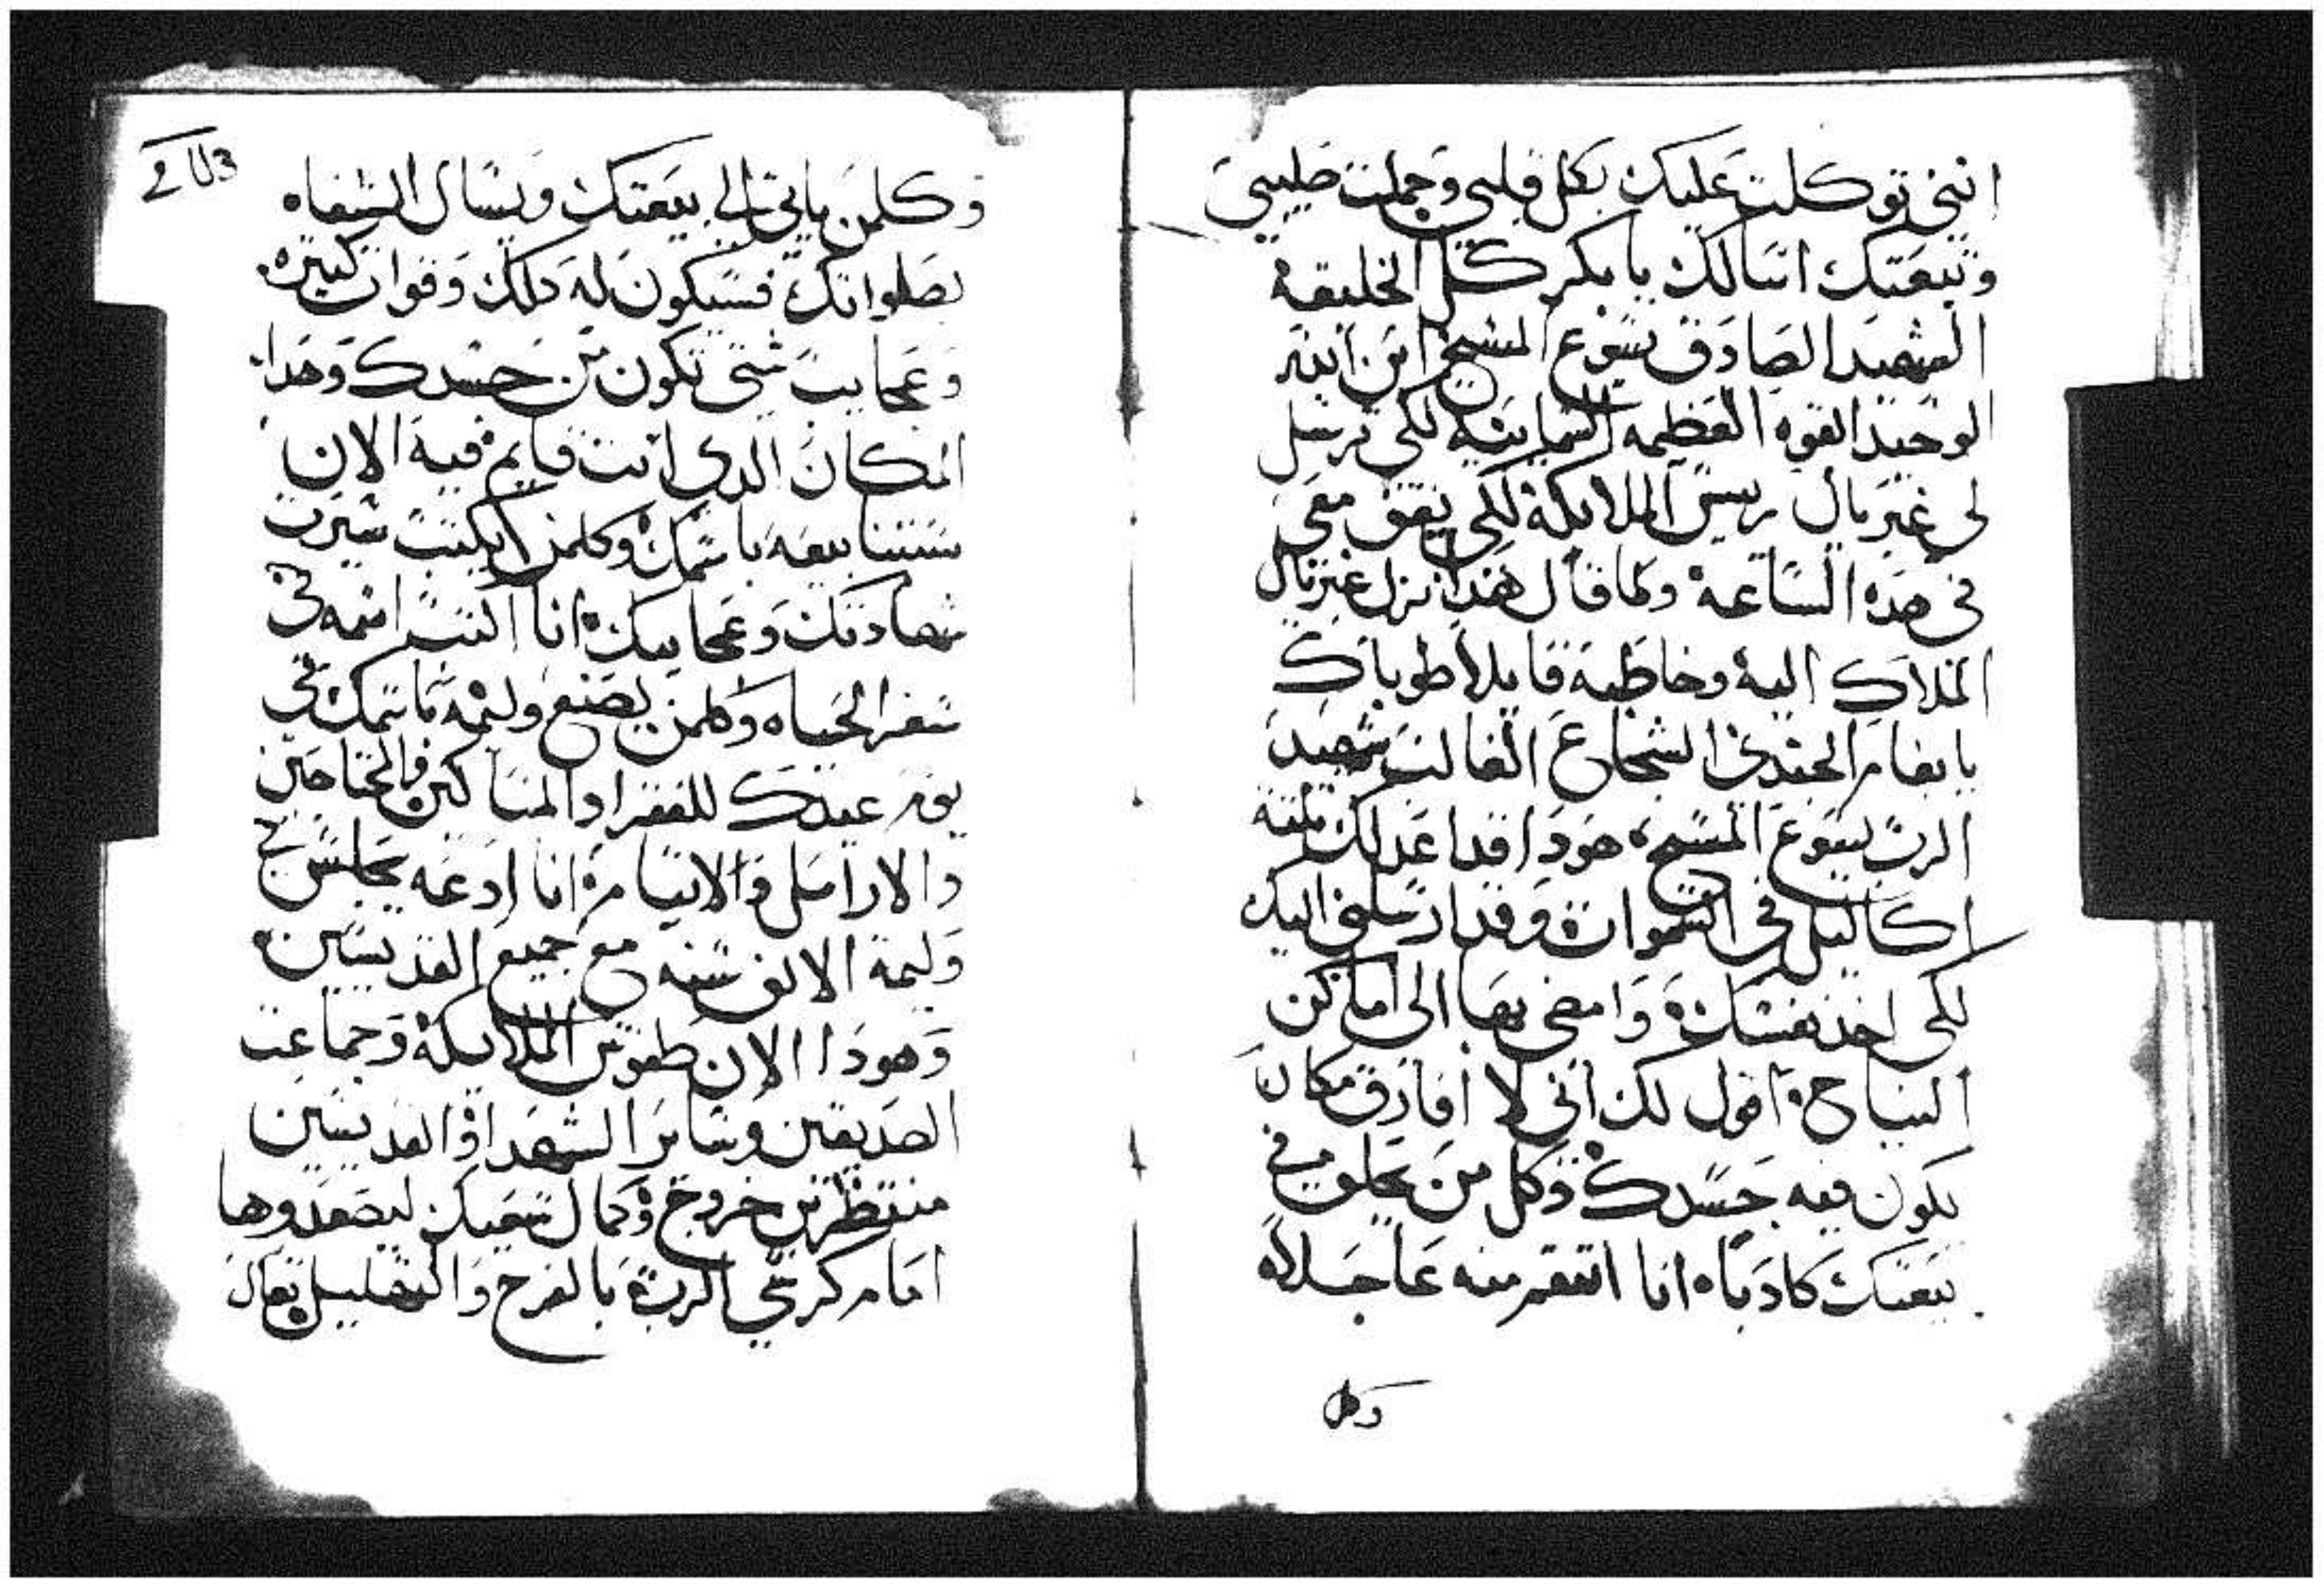 انني توكلت عليك بكل قلبي وحملت صليبي
وتبعتك اسالك يا بكر كل الخليقة
الشهيد الصادق يسوع المسيح ابن الله
الوحيد القوه العظيمه السماييه لكي ترسل
لي غبريال رييس الملايكة لكي يقف معي
في هده الساعة وكما قال هدا نزل غبريال
الملاك اليه وخاطبه قايلا طوباك
يا بفام الجندي الشجاع الغالب شهيد
الرب يسوع المسيح هودا قد اعد لك تلتة
اكاليل في السموات وقد ارسلني اليك
لكي اخد نفسك وامضي بها الى اماكن
النياح اقول لك اني لا افارق مكان
يكون فيه جسدك وكل من يحلف في
بيعتك كادبا انا انتقم منه عاجلا
وكل
وكلمن ياتي الي بيعتك ويسال الشفاه
بصلواتك فسيكون له دلك وقوات كتيره
وعجايب شتي تكون من جسدك وهدا
المكان الدي انت قايم فيه الان
ستبنا بيعه باسمك وكلمن يكتب سيرت
شهادتك وعجايبك انا اكتب اسمه في
سفر الحياه وكلمن يصنع وليمه باسمك في
يوم عيدك للفقرا والمساكين والمحتاجين
والارامل والايتام انا ادعه يجلس في
وليمة الالف سنه مع جميع القديسين
وهودا الان طغوس الملايكة وجماعت
الصديقين وساير الشهدا والقديسين
منتظرين خروج وكمال نفسك ليصعدوها
امام كرسي الرب بالفرح والتهليل تعال